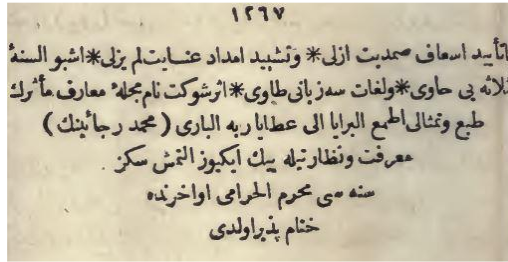 ١٢٦٧
بتأييد اسعاف صمديت ازلى * وتشييد امداد عنايت لم يزلى * اشبو السنهٔ
ثلاثه يى حاوى * ولغات سه زبانى طاوى * اثر شوكت نام مجلهٔ معارف مأثرك
طبع وتمثالى اطمع البرايا الى عطايا ربه البارى ( محمد رجائينك )
معرفت ونظارتيله بيك ايكيوز التمش سكز
سنه سى محرم الحرامى اواخرنده
ختام پذير اولدى